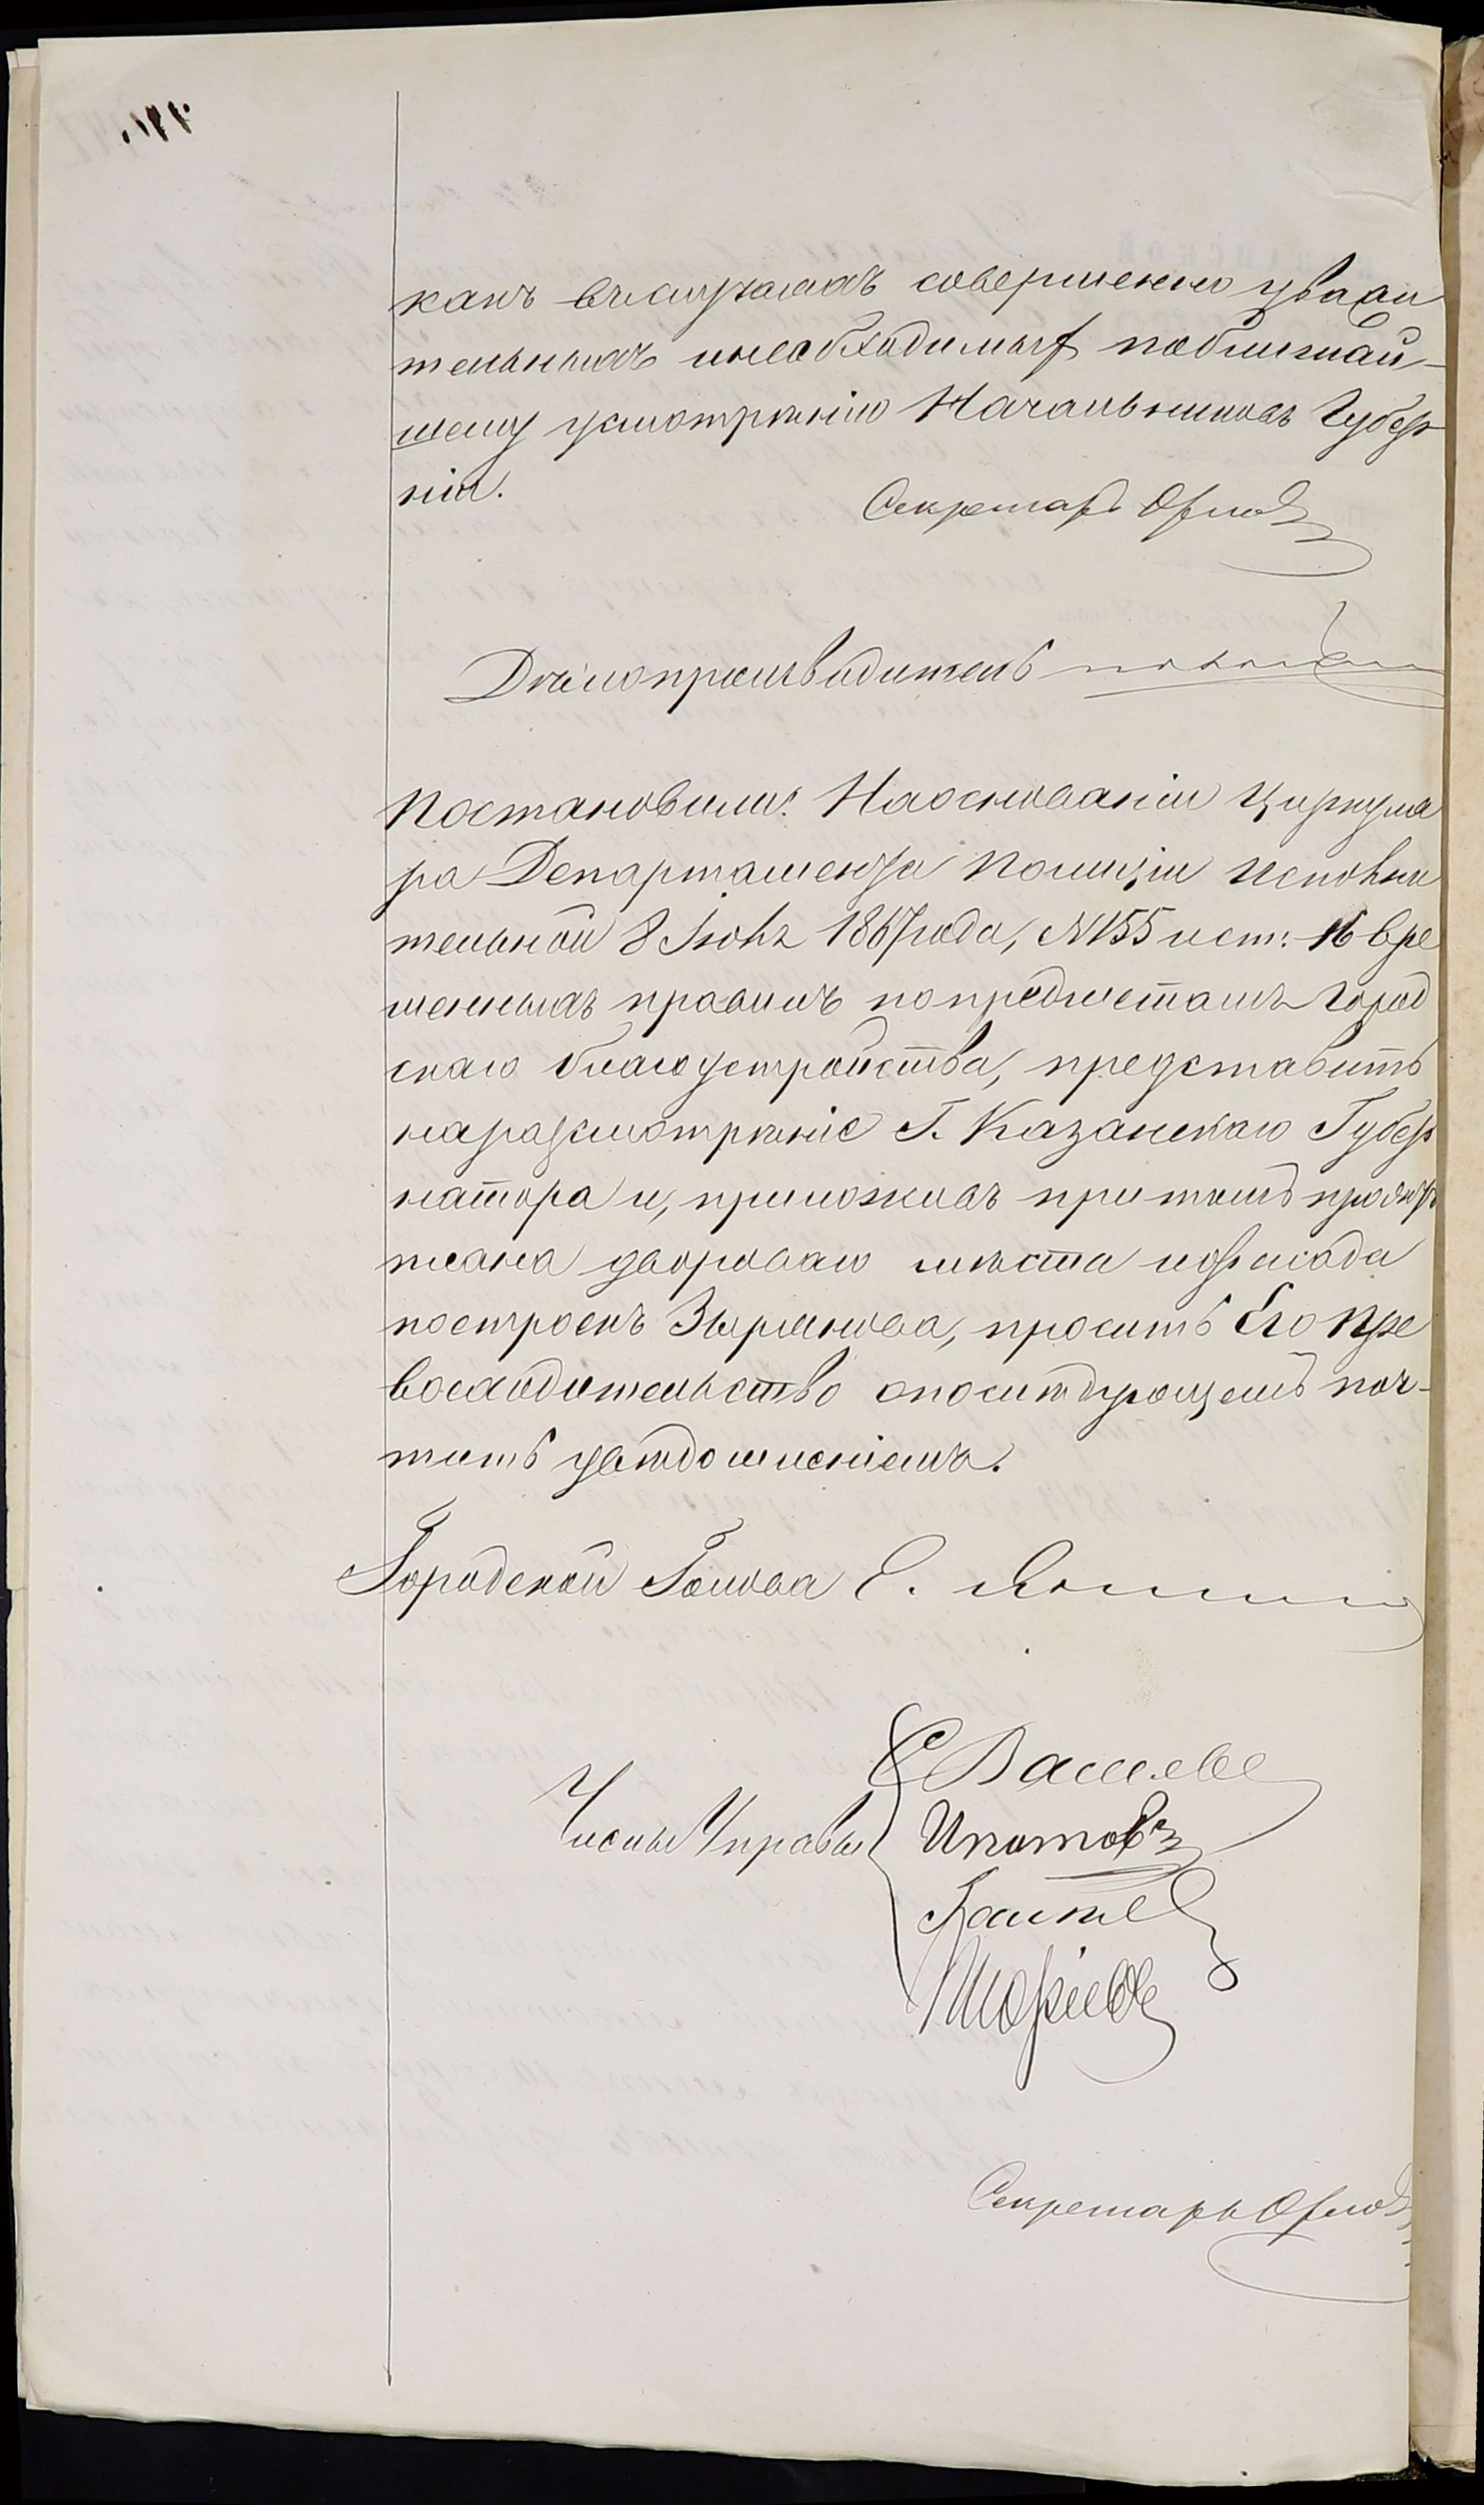 какъ въ случаяхъ совершенно уважи
тельныхъ и необходимыхъ по ближай-
шему усмотрѣнію Начальниковъ Губер
ніи.
Секретарь Орлов
Дѣлопроизводитель
Постановили: На основаніи Циркуля
ра Департамента Полиціи Исполни
тельной 8 Іюня 1867 года, № 155 и ст: 16 вре
менныхъ правилъ по предметамъ город
скаго благоустройства, представить
на разсмотрѣніе Г. Казанскаго Губер
натора и, приложивъ при томъ проэктъ
плана двороваго мѣста и фасада
построекъ Зырянова, просить Его Пре
восходительство о послѣдующемъ поч-
тить увѣдомленіемъ.
Городской Голова Е.
Члены Управы
Ипатовъ
Секретарь Орлов